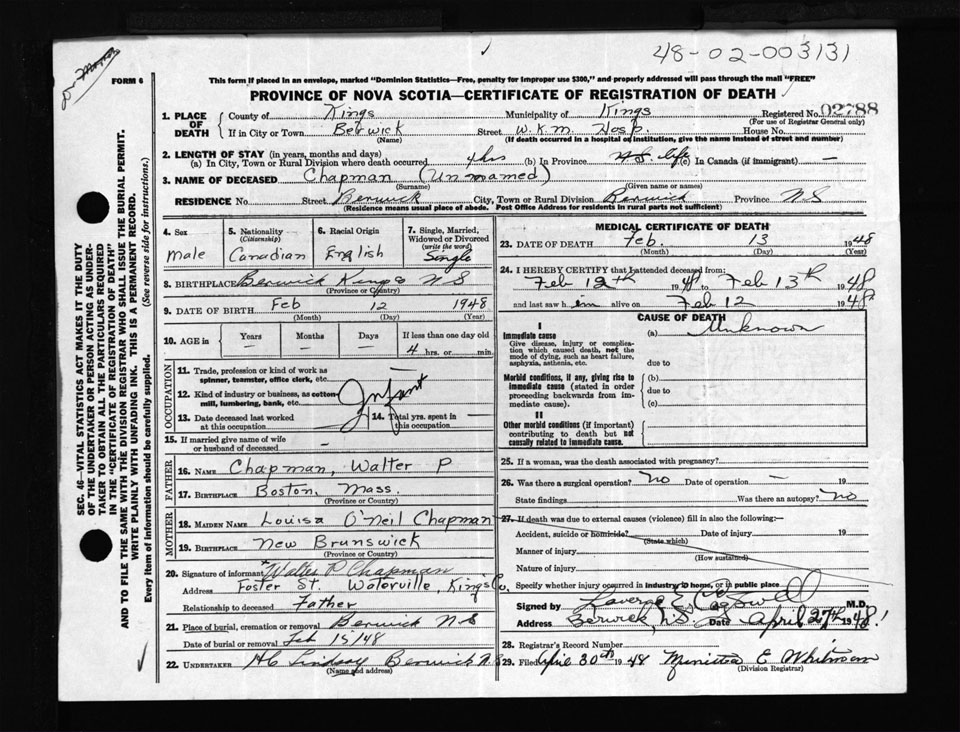 48-02-003131
FORM 6
This form if placed in an envelope, marked "Dominion Statistics—Free, penalty for improper use $300," and properly addressed will pass through the mail "FREE"
PROVINCE OF NOVA SCOTIA—CERTIFICATE OF REGISTRATION OF DEATH
1. PLACE OF DEATH County of Kings Municipality of Kings Registered No. 02788
(For use of Registrar General only)
If in City or Town Berwick Street W.K.M. Hosp. House No.
(Name) (If death occurred in a hospital or institution, give the name instead of street and number)
2. LENGTH OF STAY (in years, months and days)
(a) In City, Town or Rural Division where death occurred 4 hrs (b) In Province N.S. life (c) In Canada (if immigrant) —
3. NAME OF DECEASED Chapman (Unnamed)
(Surname) (Given name or names)
RESIDENCE No. Street Berwick City, Town or Rural Division Berwick Province N S
(Residence means usual place of abode. Post Office Address for residents in rural parts not sufficient.)
4. Sex Male
5. Nationality (Citizenship) Canadian
6. Racial Origin English
7. Single, Married, Widowed or Divorced (write the word) Single
8. BIRTHPLACE Berwick Kings N S
(Province or Country)
9. DATE OF BIRTH Feb 12 1948
(Month) (Day) (Year)
10. AGE in Years Months Days If less than one day old
— — — 4 hrs. or min.
OCCUPATION
11. Trade, profession or kind of work as spinner, teamster, office clerk, etc. —
12. Kind of industry or business, as cotton-mill, lumbering, bank, etc. Infant
13. Date deceased last worked at this occupation
14. Total yrs. spent in this occupation —
15. If married give name of wife or husband of deceased —
FATHER
16. NAME Chapman, Walter P
17. BIRTHPLACE Boston, Mass
(Province or Country)
MOTHER
18. MAIDEN NAME Louisa O'Neil Chapman
19. BIRTHPLACE New Brunswick
(Province or Country)
20. Signature of informant Walter P Chapman
Address Foster St. Waterville, Kings Co,
Relationship to deceased Father
21. Place of burial, cremation or removal Berwick N S
Date of burial or removal Feb 15/48
22. UNDERTAKER H C Lindsay Berwick N.S
(Name and address)
MEDICAL CERTIFICATE OF DEATH
23. DATE OF DEATH Feb. 13 1948
(Month) (Day) (Year)
24. I HEREBY CERTIFY that I attended deceased from:
Feb 12th 1948 to Feb 13th 1948
and last saw him alive on Feb 12 1948
CAUSE OF DEATH
I
Immediate cause
Give disease, injury or complication which caused death, not the mode of dying, such as heart failure, asphyxia, asthenia, etc.
(a) Unknown
due to
Morbid conditions, if any, giving rise to immediate cause (stated in order proceeding backwards from immediate cause).
(b)
due to
(c)
II
Other morbid conditions (if important) contributing to death but not causally related to immediate cause.
25. If a woman, was the death associated with pregnancy?
26. Was there a surgical operation? No Date of operation — 19
State findings Was there an autopsy? No
27. If death was due to external causes (violence) fill in also the following:—
Accident, suicide or homicide? Date of injury 19
(State which)
Manner of injury
(How sustained)
Nature of injury
Specify whether injury occurred in industry, in home, or in public place
Signed by M.D.
Address Berwick, N.S Date April 27th 1948
28. Registrar's Record Number
29. Filed April 30th 1948 E. Whitman
(Division Registrar)
SEC. 46—VITAL STATISTICS ACT MAKES IT THE DUTY
OF THE UNDERTAKER OR PERSON ACTING AS UNDER-
TAKER TO OBTAIN ALL THE PARTICULARS REQUIRED
IN THE "CERTIFICATE OF REGISTRATION OF DEATH"
AND TO FILE THE SAME WITH THE DIVISION REGISTRAR WHO SHALL ISSUE THE BURIAL PERMIT.
WRITE PLAINLY WITH UNFADING INK. THIS IS A PERMANENT RECORD.
Every item of information should be carefully supplied. (See reverse side for instructions.)